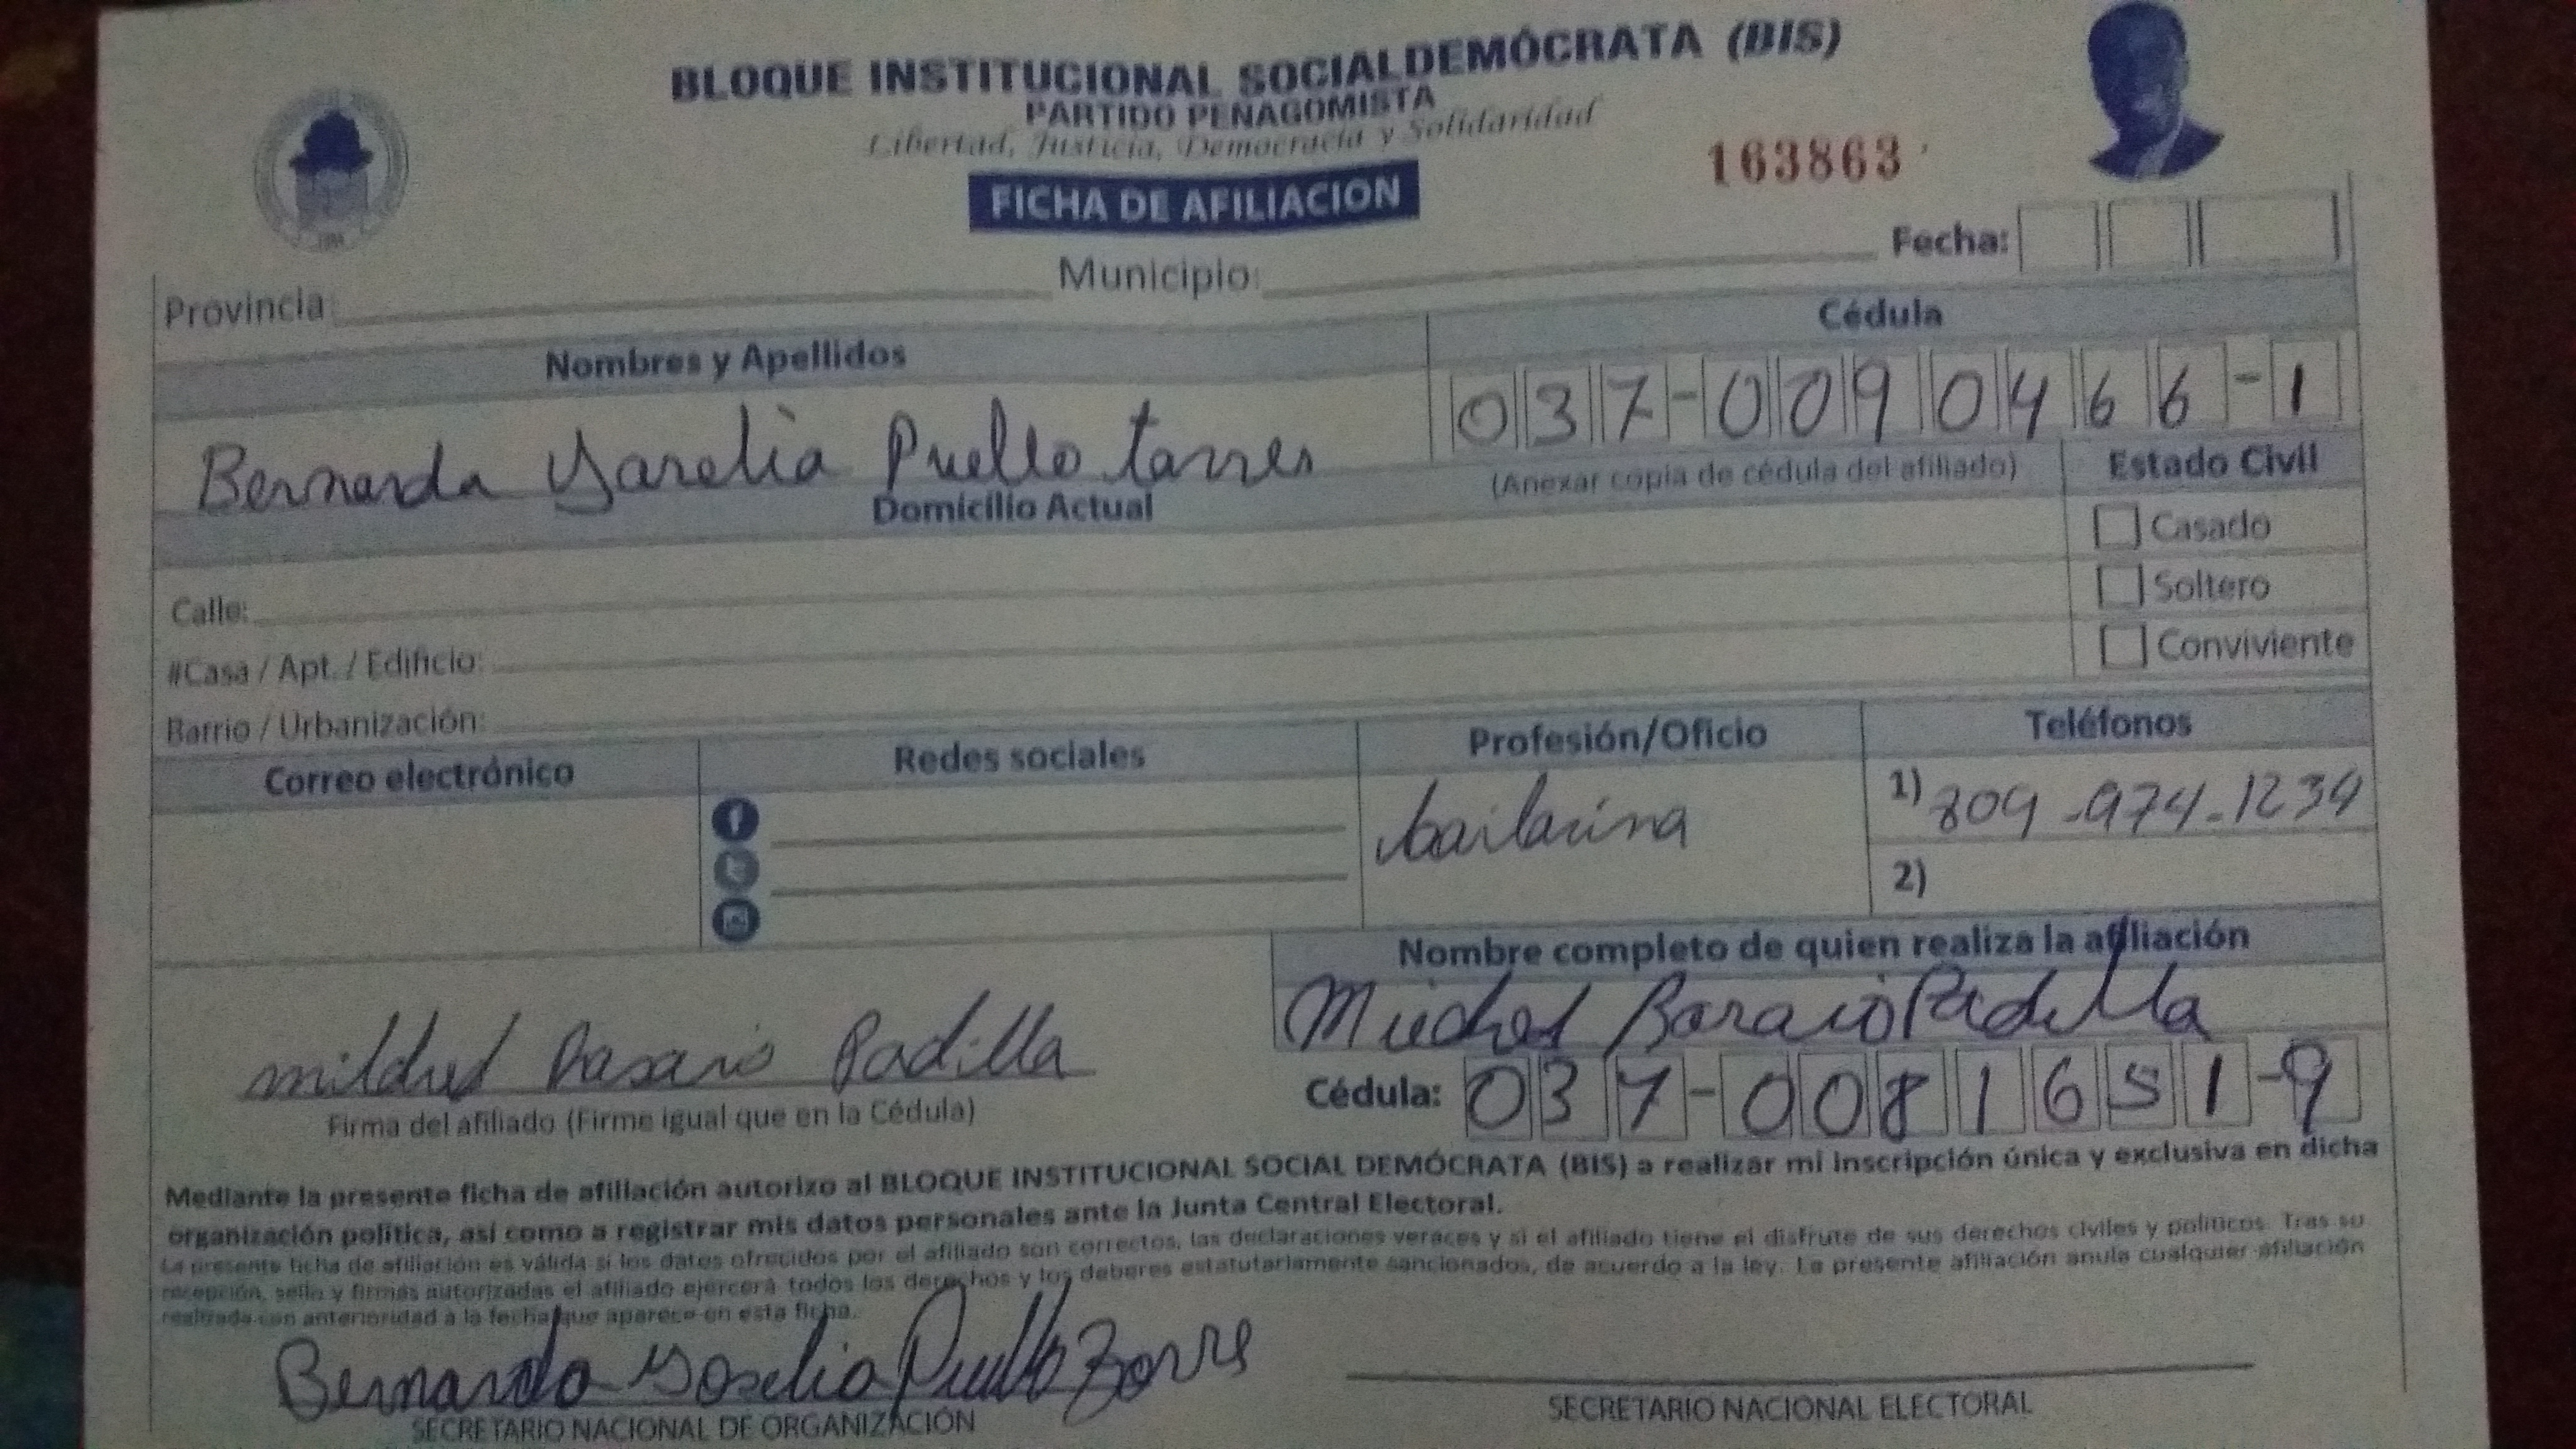 BLOQUE INSTITUCIONAL SOCIALDEMÓCRATA (BIS)
PARTIDO PEÑAGOMISTA
Libertad, Justicia, Democracia y Solidaridad
163863
FICHA DE AFILIACION
Fecha:
Provincia: Municipio:
Nombres y Apellidos Cédula
Bernarda Yarelia Puello torres 037-0090466-1
(Anexar copia de cédula del afiliado) Estado Civil
Domicilio Actual
Casado
Calle: Soltero
#Casa / Apt. / Edificio: Conviviente
Barrio / Urbanización:
Correo electrónico Redes sociales Profesión/Oficio Teléfonos
bailarina 1) 809-974-1234
2)
Nombre completo de quien realiza la afiliación
Padilla
mildred Rosario Padilla Cédula: 037-0081651-9
Firma del afiliado (Firme igual que en la Cédula)
Mediante la presente ficha de afiliación autorizo al BLOQUE INSTITUCIONAL SOCIAL DEMÓCRATA (BIS) a realizar mi inscripción única y exclusiva en dicha
organización política, así como a registrar mis datos personales ante la Junta Central Electoral.
La presente ficha de afiliación es válida si los datos ofrecidos por el afiliado son correctos, las declaraciones veraces y si el afiliado tiene el disfrute de sus derechos civiles y políticos. Tras su
recepción, sello y firmas autorizadas el afiliado ejercerá todos los derechos y los deberes estatutariamente sancionados, de acuerdo a la ley. La presente afiliación anula cualquier afiliación
realizada con anterioridad a la fecha que aparece en esta ficha.
Bernarda Yoselia Puello Torres
SECRETARIO NACIONAL DE ORGANIZACIÓN SECRETARIO NACIONAL ELECTORAL